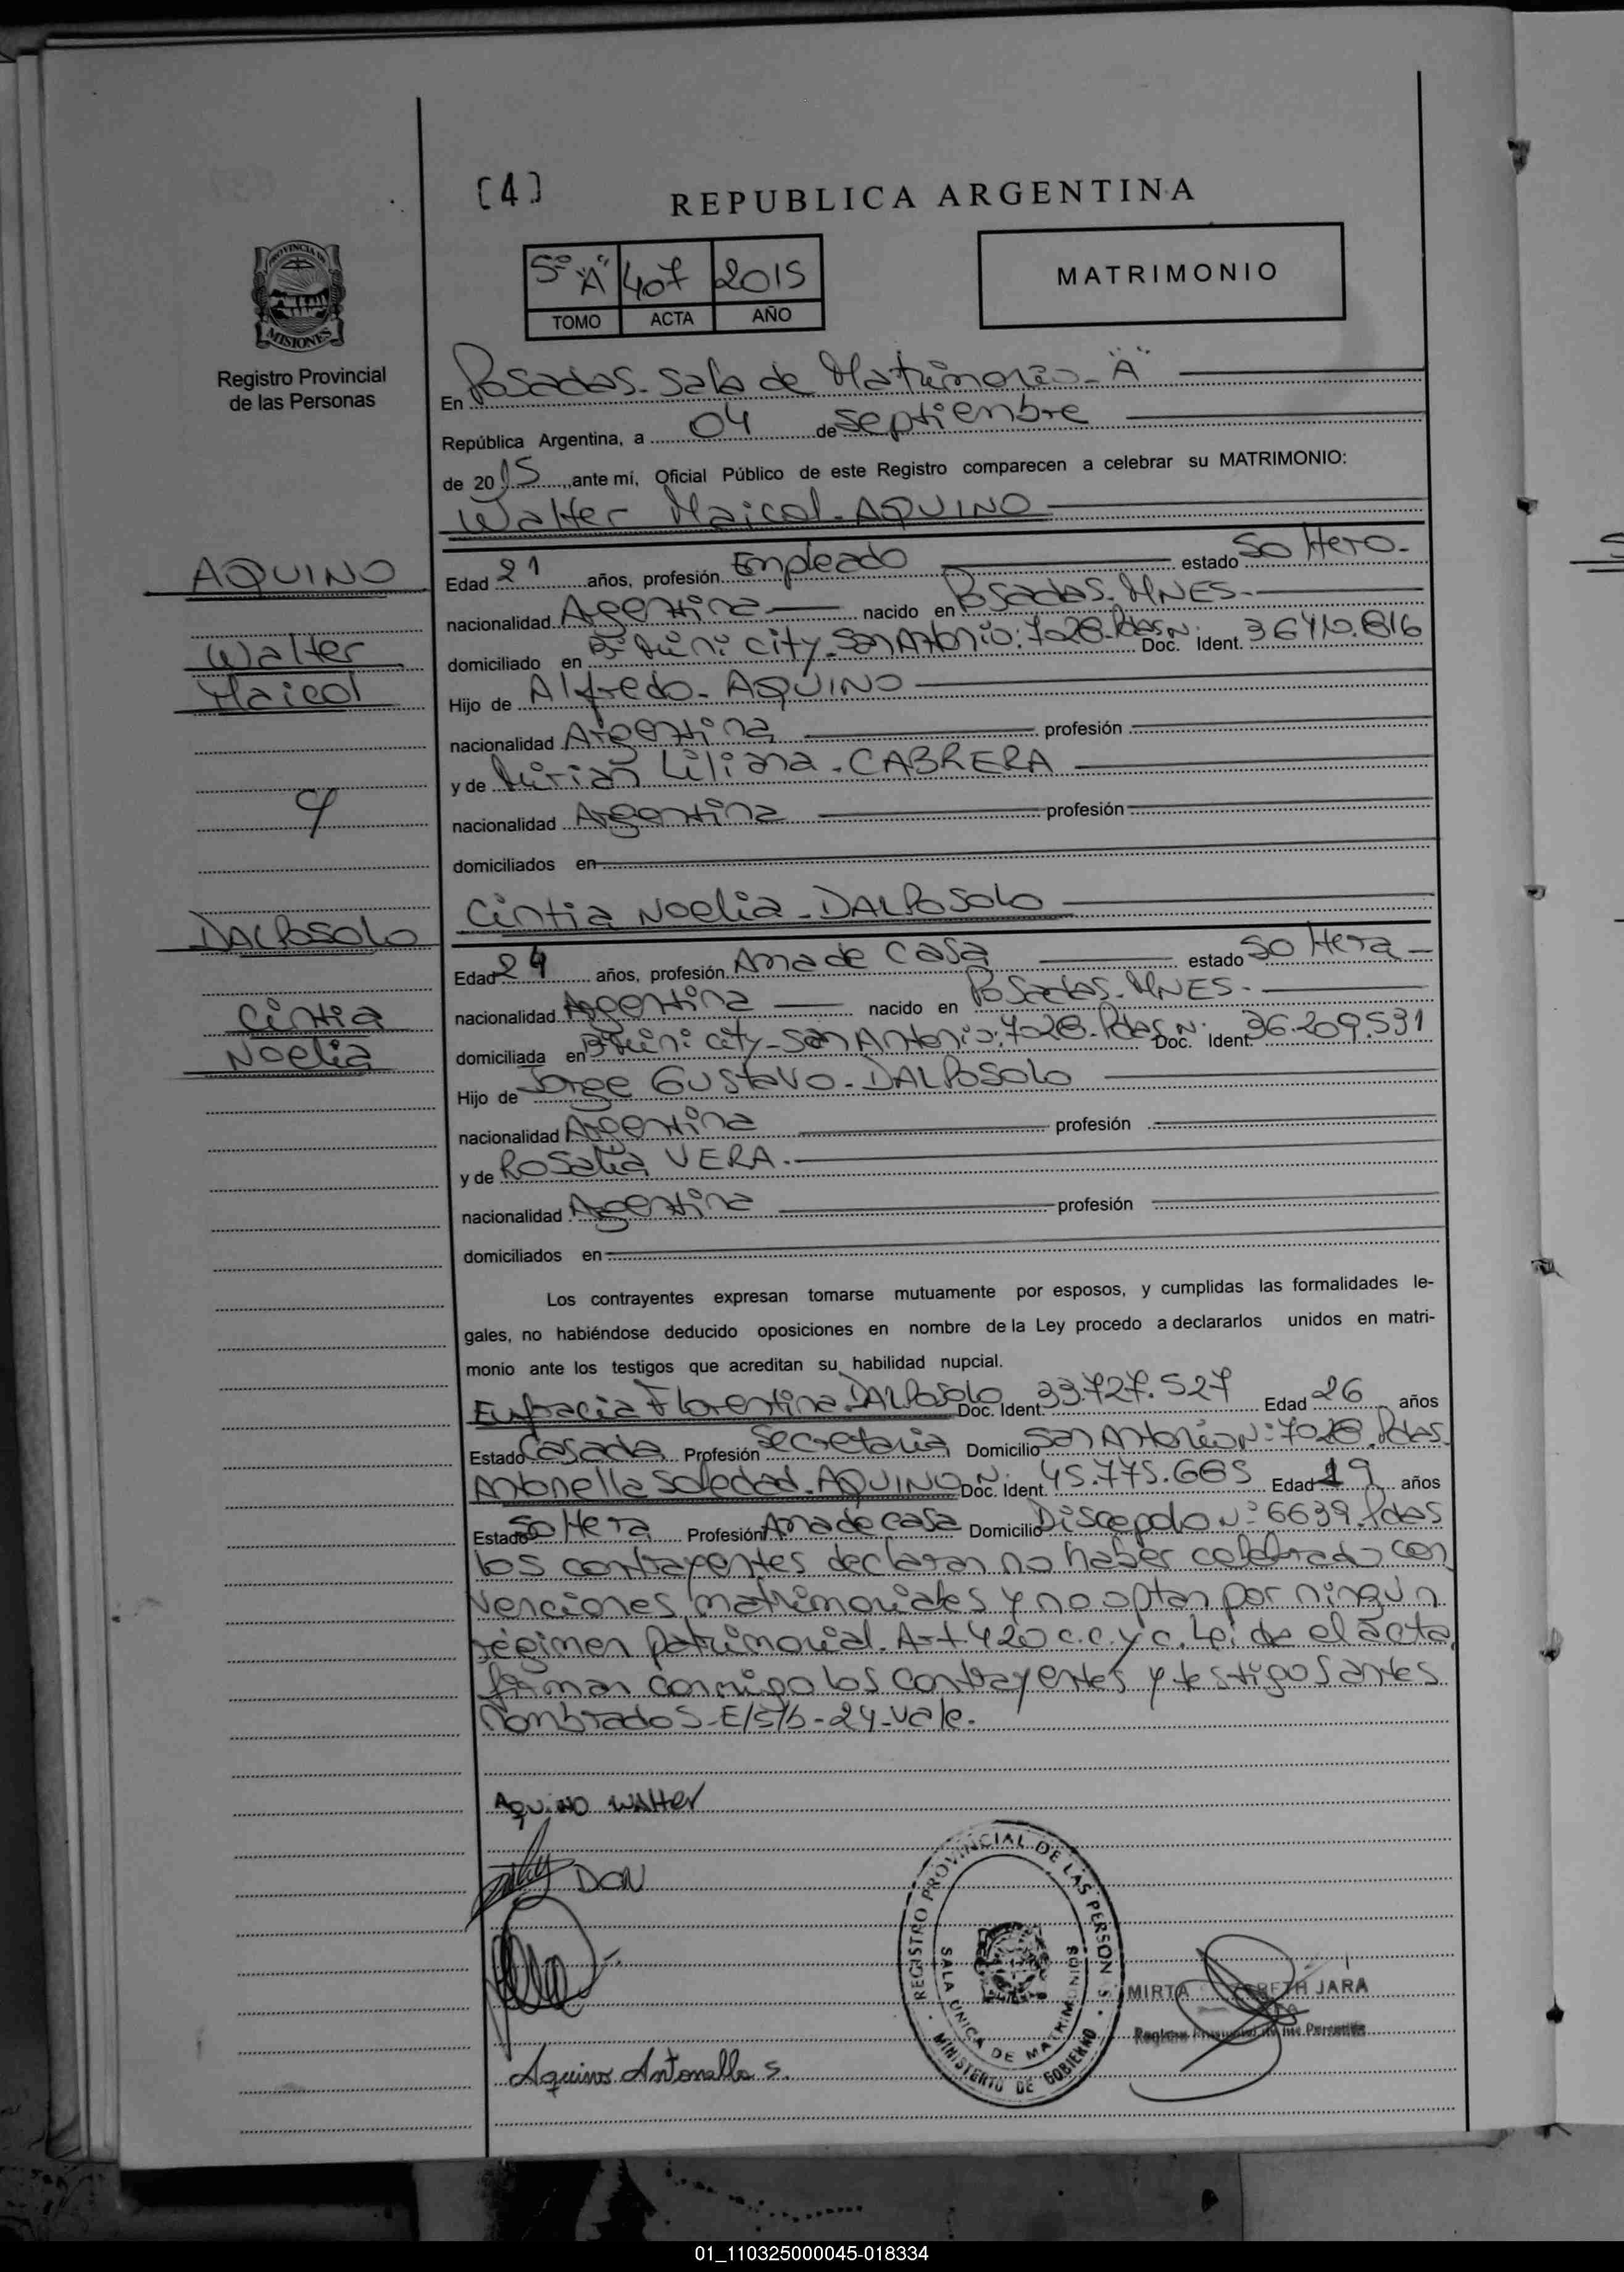 [4]
REPUBLICA ARGENTINA
PROVINCIA DE
MISIONES
Registro Provincial
de las Personas
5º "A" 407 2015
TOMO ACTA AÑO
MATRIMONIO
En Posadas-Sala de Matrimonio-"A"
República Argentina, a 04 de Septiembre
de 2015, ante mí, Oficial Público de este Registro comparecen a celebrar su MATRIMONIO:
Walter Maicol-AQUINO
AQUINO
Walter
Maicol
Edad 21 años, profesión Empleado estado Soltero-
nacionalidad Argentina nacido en Posadas-MNES-
domiciliado en Bº city-San Antonio: 7028-Pdas Nº Doc. Ident. 3640.816
Hijo de Alfredo-AQUINO
nacionalidad Argentina profesión
y de Mirian Liliana-CABRERA
nacionalidad Argentina profesión
domiciliados en
y
Cintia Noelia-DALPOSOLO
DALPOSOLO
Cintia
Noelia
Edad 24 años, profesión Ama de Casa estado Soltera-
nacionalidad Argentina nacido en Posadas-MNES-
domiciliada en Bº city-San Antonio: 7028-Pdas Nº Doc. Ident. 36.209.531
Hijo de Jorge Gustavo-DALPOSOLO
nacionalidad Argentina profesión
y de Rosalia VERA-
nacionalidad Argentina profesión
domiciliados en
Los contrayentes expresan tomarse mutuamente por esposos, y cumplidas las formalidades le-
gales, no habiéndose deducido oposiciones en nombre de la Ley procedo a declararlos unidos en matri-
monio ante los testigos que acreditan su habilidad nupcial.
Eufracia Florentina DALPOSOLO Doc. Ident. 33.727.527 Edad 26 años
Estado Casada Profesión Secretaria Domicilio San Antonio Nº: 7028-Pdas
Antonella Soledad-AQUINO Nº Doc. Ident. 45.775.665 Edad 19 años
Estado Soltera Profesión Ama de casa Domicilio Discepolo Nº 6639-Pdas
los contrayentes declaran no haber celebrado con
venciones matrimoniales y no optan por ningun
régimen patrimonial-Art 420 c.c.y c. Leida el acta
firman conmigo los contrayentes y testigos antes
nombrados-E/s/b-24-Vale.
AQUINO WALTER
DCN
Aquino Antonella S.
REGISTRO PROVINCIAL DE LAS PERSONAS
SALA UNICA DE MATRIMONIOS
MINISTERIO DE GOBIERNO
MIRTA JARA
01_110325000045-018334